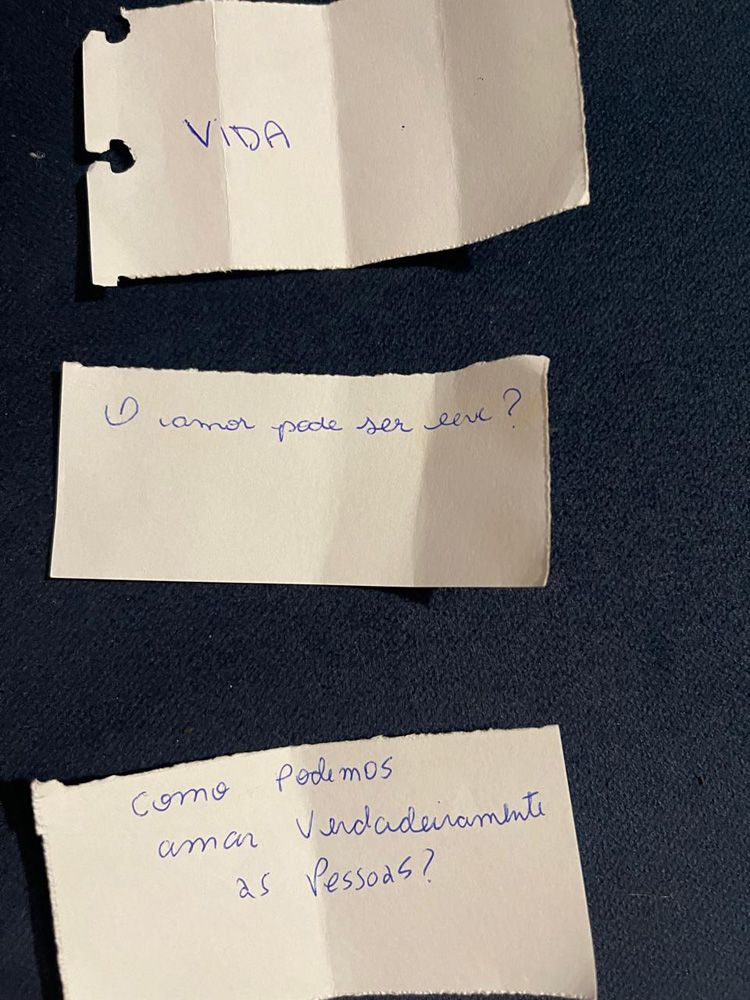 VIDA
O amor pode ser leve?
Como Podemos
amar Verdadeiramente
as Pessoas?